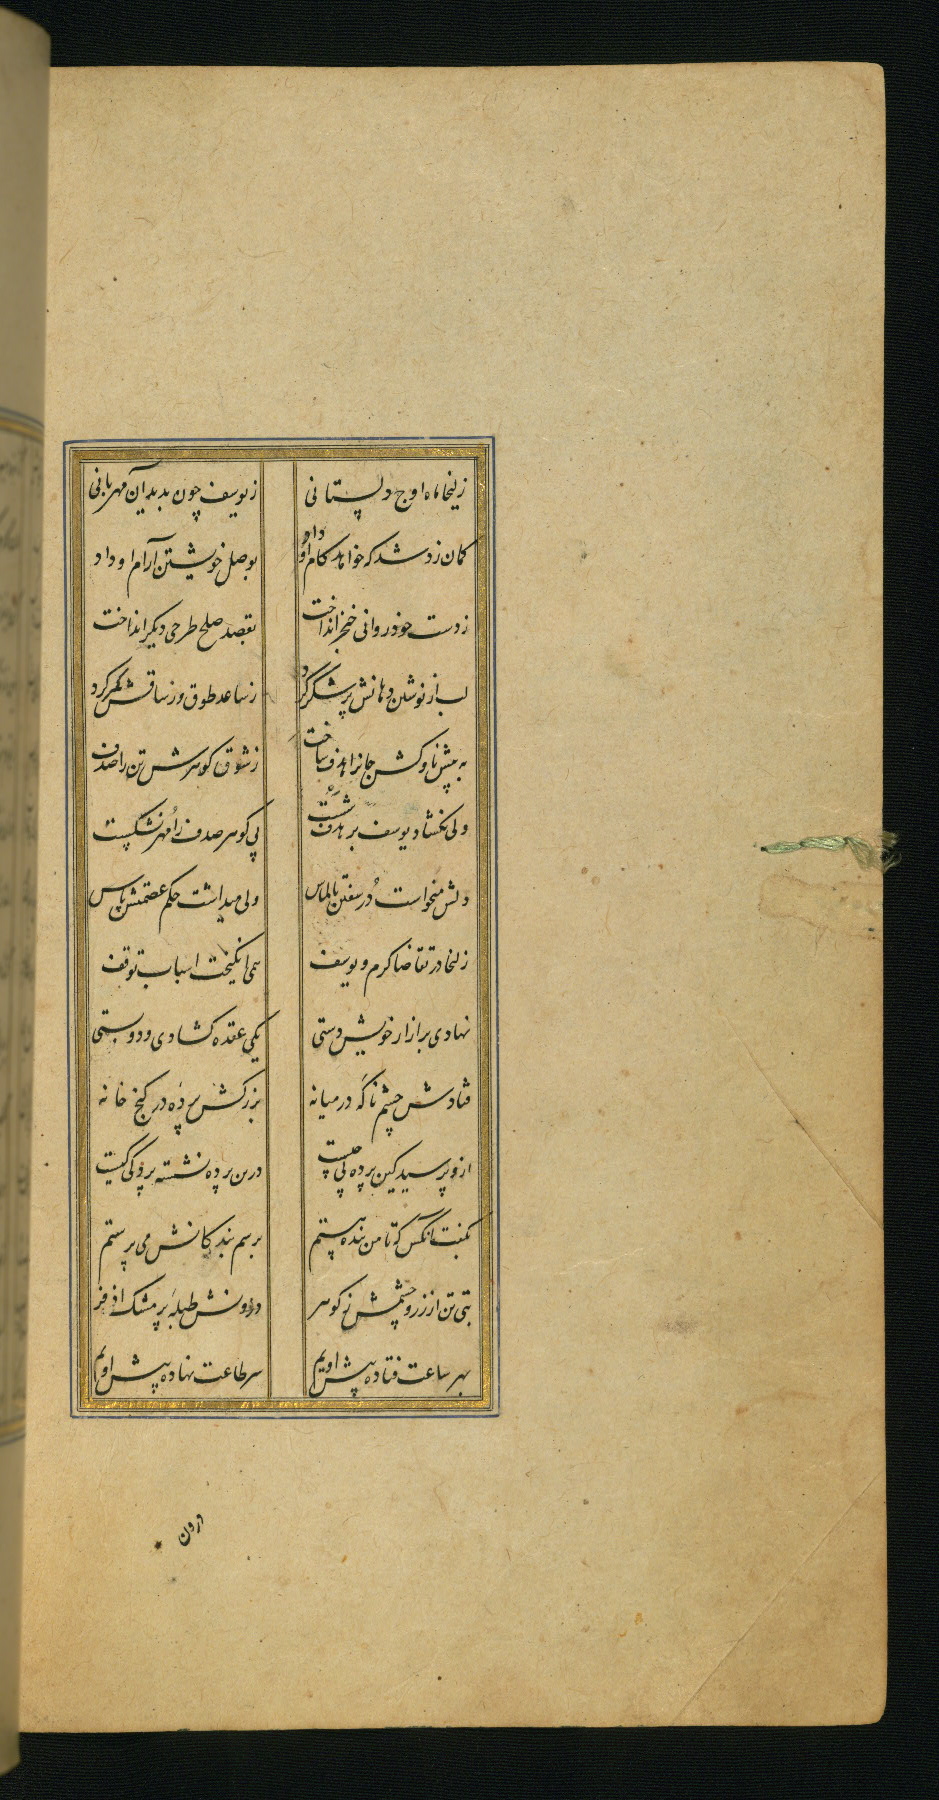 زلیخا ماه اوج دلستانی زیوسف چون بدید آن مهربانی
کمان زد شد که خواهد کام او داد بوصل خویشتن آرام او داد
زدست خود روانی خنجر انداخت بقصد صلح طرحی دیکر انداخت
لب از نوشین دهانش پر شکر کرد زساعد طوق وز ساقش کمر کرد
به پیش ناوکش جانرا هدف ساخت زشوق کوهرش تن را صدف
ولی نکشاد یوسف بر هدف شست پی کوهر صدف را مهر نشکست
دلش میخواست در سفتن بالماس ولی میداشت حکم عصمتش پاس
زلیخا در تقاضا کرم و یوسف همی انکیخت اسباب توقف
نهادی بر ازار خویش دستی یکی عقده کشادی و دو بستی
فتادش چشم ناکه در میانه بزرکش پرده در کنج خانه
ازو پرسید کین پرده پی چیست درین پرده نشسته پردکی کیست
بکفت آنکس که تا من بنده هستم برسم بندکانش می پرستم
بتی تن از زر و چشمش ز کوهر درونش طبله پر مشک اذفر
بهر ساعت فتاده پیش اویم سر طاعت نهاده پیش اویم
درون